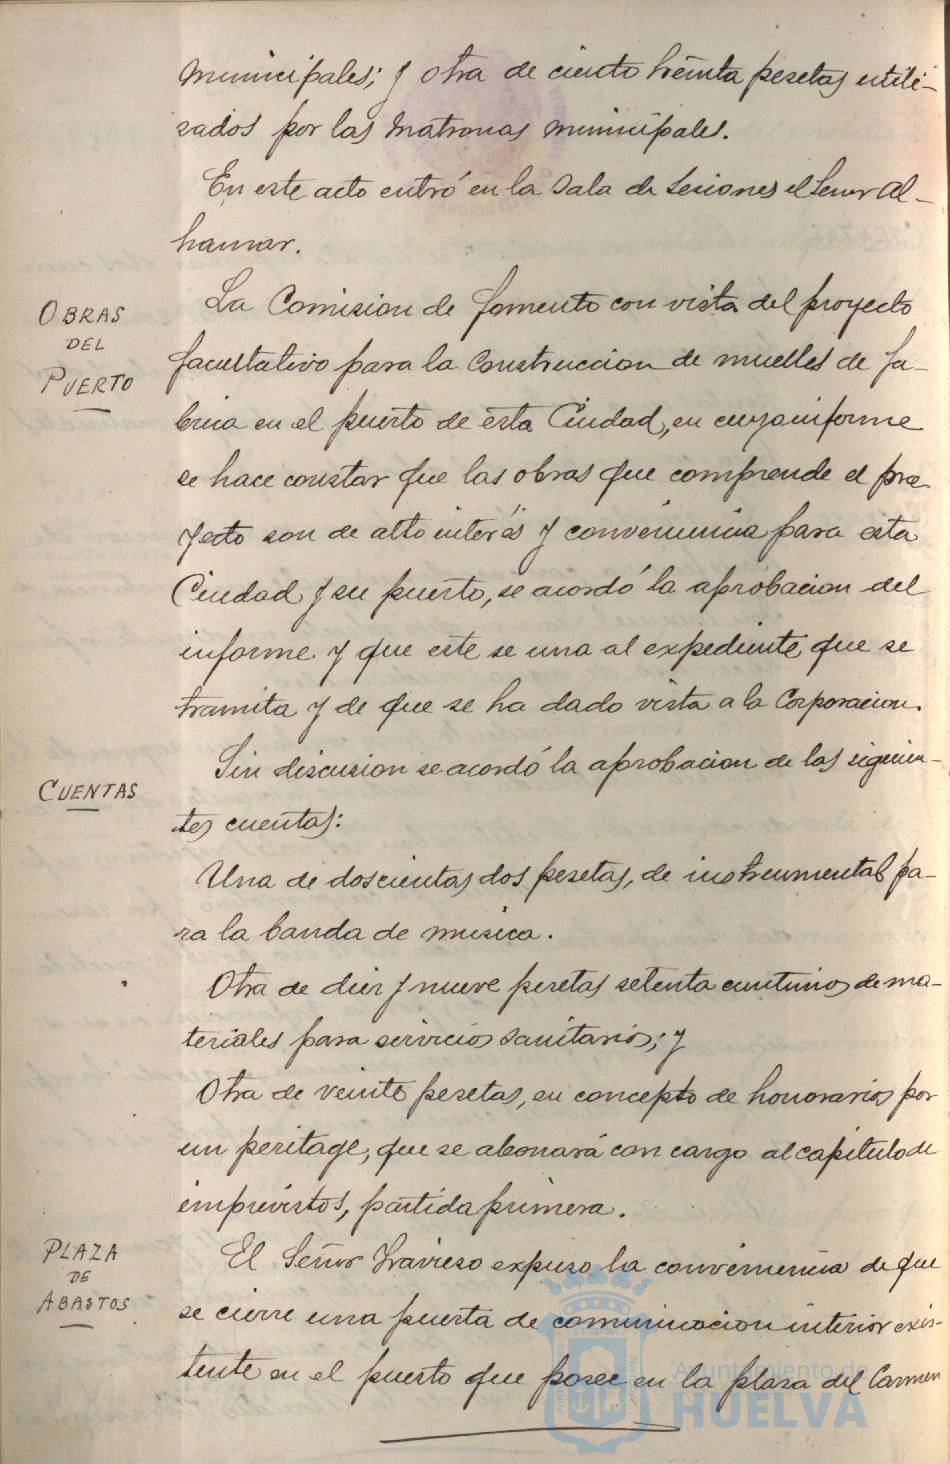 municipales; y otra de ciento treinta pesetas utili-
zados por las Matronas municipales.
En este acto entró en la Sala de Sesiones el Señor Al-
hamar.
OBRAS
DEL
PUERTO
La Comision de fomento con vista del proyecto
facultativo para la Construccion de muelles de fa-
brica en el puerto de esta Ciudad, en cuyo informe
se hace constar que las obras que comprende el pro-
yecto son de alto interés y conveniencia para esta
Ciudad y su puerto, se acordó la aprobacion del
informe y que este se una al expediente que se
tramita y de que se ha dado vista a la Corporacion.
CUENTAS
Sin discusion se acordó la aprobacion de las siguien-
tes cuentas:
Una de doscientas dos pesetas, de instrumental pa-
ra la banda de musica.
Otra de diez y nueve pesetas setenta centimos de ma-
teriales para servicios sanitarios; y
Otra de veinte pesetas, en concepto de honorarios por
un peritage, que se abonará con cargo al capitulo de
imprevistos, partida primera.
PLAZA
DE
ABASTOS
El Señor Travieso expuso la conveniencia de que
se cierre una puerta de comunicacion interior exis-
tente en el puesto que posee en la plaza del Carmen
Ayuntamiento de
HUELVA